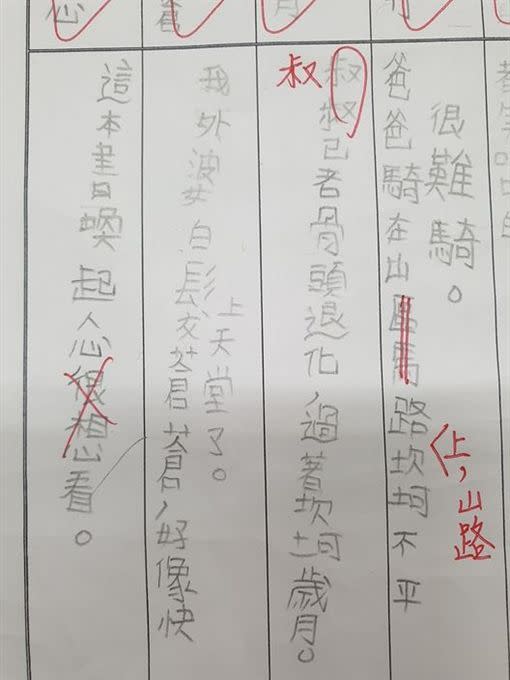 爸爸騎在山路坎坷不平
很難騎。
上，山路
叔叔已者骨頭退化，過著坎坷歲月。
叔
我外婆白髮蒼蒼，好像快
上天堂了。
這本書喚起人心很想看。